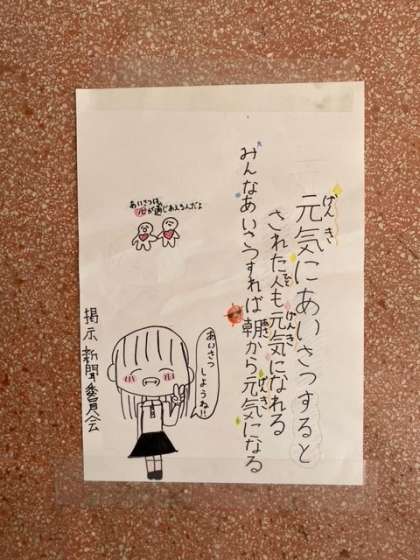 元気にあいさつすると
された人も元気になれる
みんなあいさつすれば朝から元気になる
あいさつは、
心が通じあえるんだよ
あいさつ
しようね!!
掲示 新聞委員会